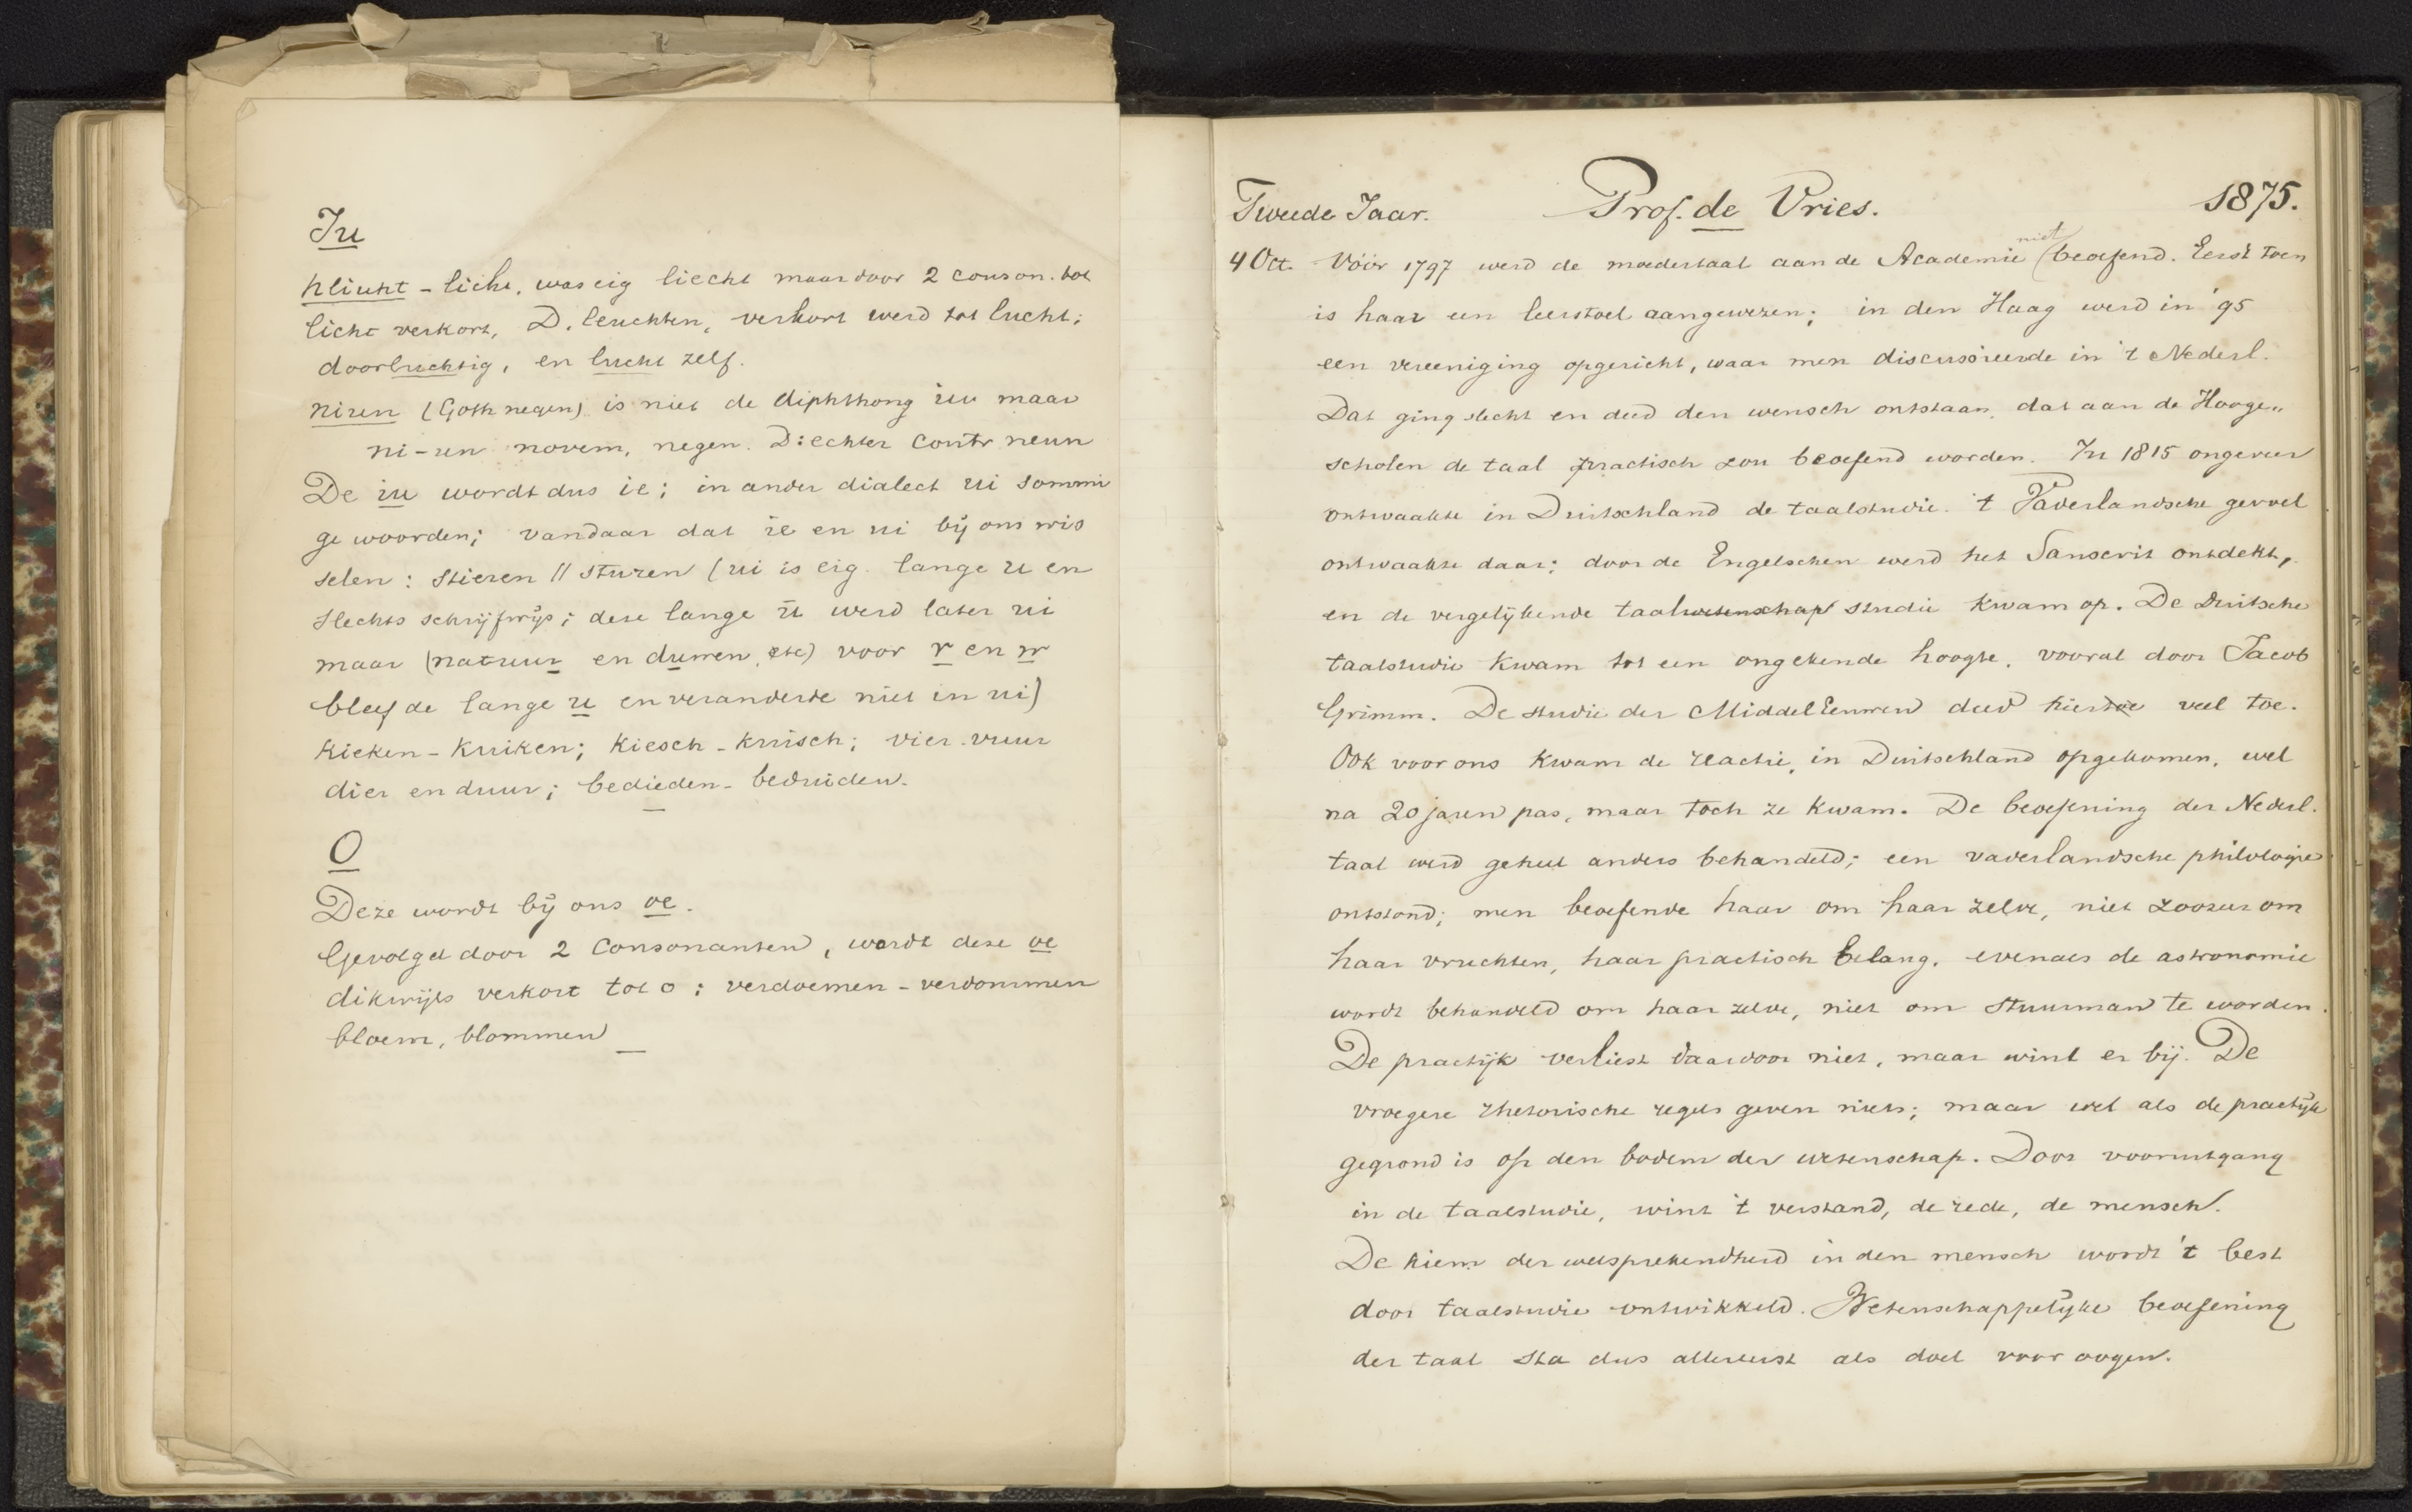 Iu
hliuht - licht, was eig liecht maar door 2 conson. tot
licht verkort, D. leuchten, verkort werd tot lucht;
doorluchtig, en lucht zelf.
niun (Goth negen) is niet de diphthong iu maar
ni-un novem, negen. D: echter contr neun
De iu wordt dus ie; in ander dialect ui sommi
ge woorden; vandaar dat ie en ui bij ons wis
selen: stieren // sturen (ui is eig. lange u en
slechts schrijfwijs; deze lange ū werd later ui
maar (natuur en duwen, etc) voor r en w
bleef de lange u en veranderde niet in ui)
Kieken - Kuiken; Kiesch - kuisch; vier - vuur
dier en duur; bedieden - beduiden.
O
Deze wordt bij ons oe.
Gevolgd door 2 Consonanten, wordt deze oe
dikwijls verkort tot o: verdoemen - verdommen
bloem, blommen
Tweede Jaar. Prof. de Vries. 1875.
4 Oct. Vóór 1797 werd de moedertaal aan de Academie niet beoefend. Eerst toen
is haar een leerstoel aangewezen; in den Haag werd in '95
een vereeniging opgericht, waar men discussieerde in 't Nederl.
Dat ging slecht en deed den wensch ontstaan, dat aan de Hooge„
scholen de taal practisch zou beoefend worden. In 1815 ongeveer
ontwaakte in Duitschland de taalstudie. 't Vaderlandsche gevoel
ontwaakte daar; door de Engelschen werd het Sanscrit ontdekt,
en de vergelijkende taalwetenschap studie kwam op. De Duitsche
taalstudie kwam tot een ongekende hoogte, vooral door Jacob
Grimm. De studie der MiddelEeuwen deed hiertoe veel toe.
Ook voor ons kwam de reactie, in Duitschland opgekomen, wel
na 20 jaren pas, maar toch ze kwam. De beoefening der Nederl.
taal werd geheel anders behandeld; een vaderlandsche philologie
ontstond; men beoefende haar om haar zelve, niet zoozeer om
haar vruchten, haar practisch belang, evenals de astronomie
wordt behandeld om haar zelve, niet om stuurman te worden.
De practijk verliest daardoor niet, maar wint er bij. De
vroegere rhetorische regels geven niets; maar wel als de practijk
gegrond is op den bodem der wetenschap. Door vooruitgang
in de taalstudie, wint 't verstand, de rede, de mensch.
De kiem der welsprekendheid in den mensch wordt 't best
door taalstudie ontwikkeld. Wetenschappelijke beoefening
der taal sta dus allereerst als doel voor oogen.